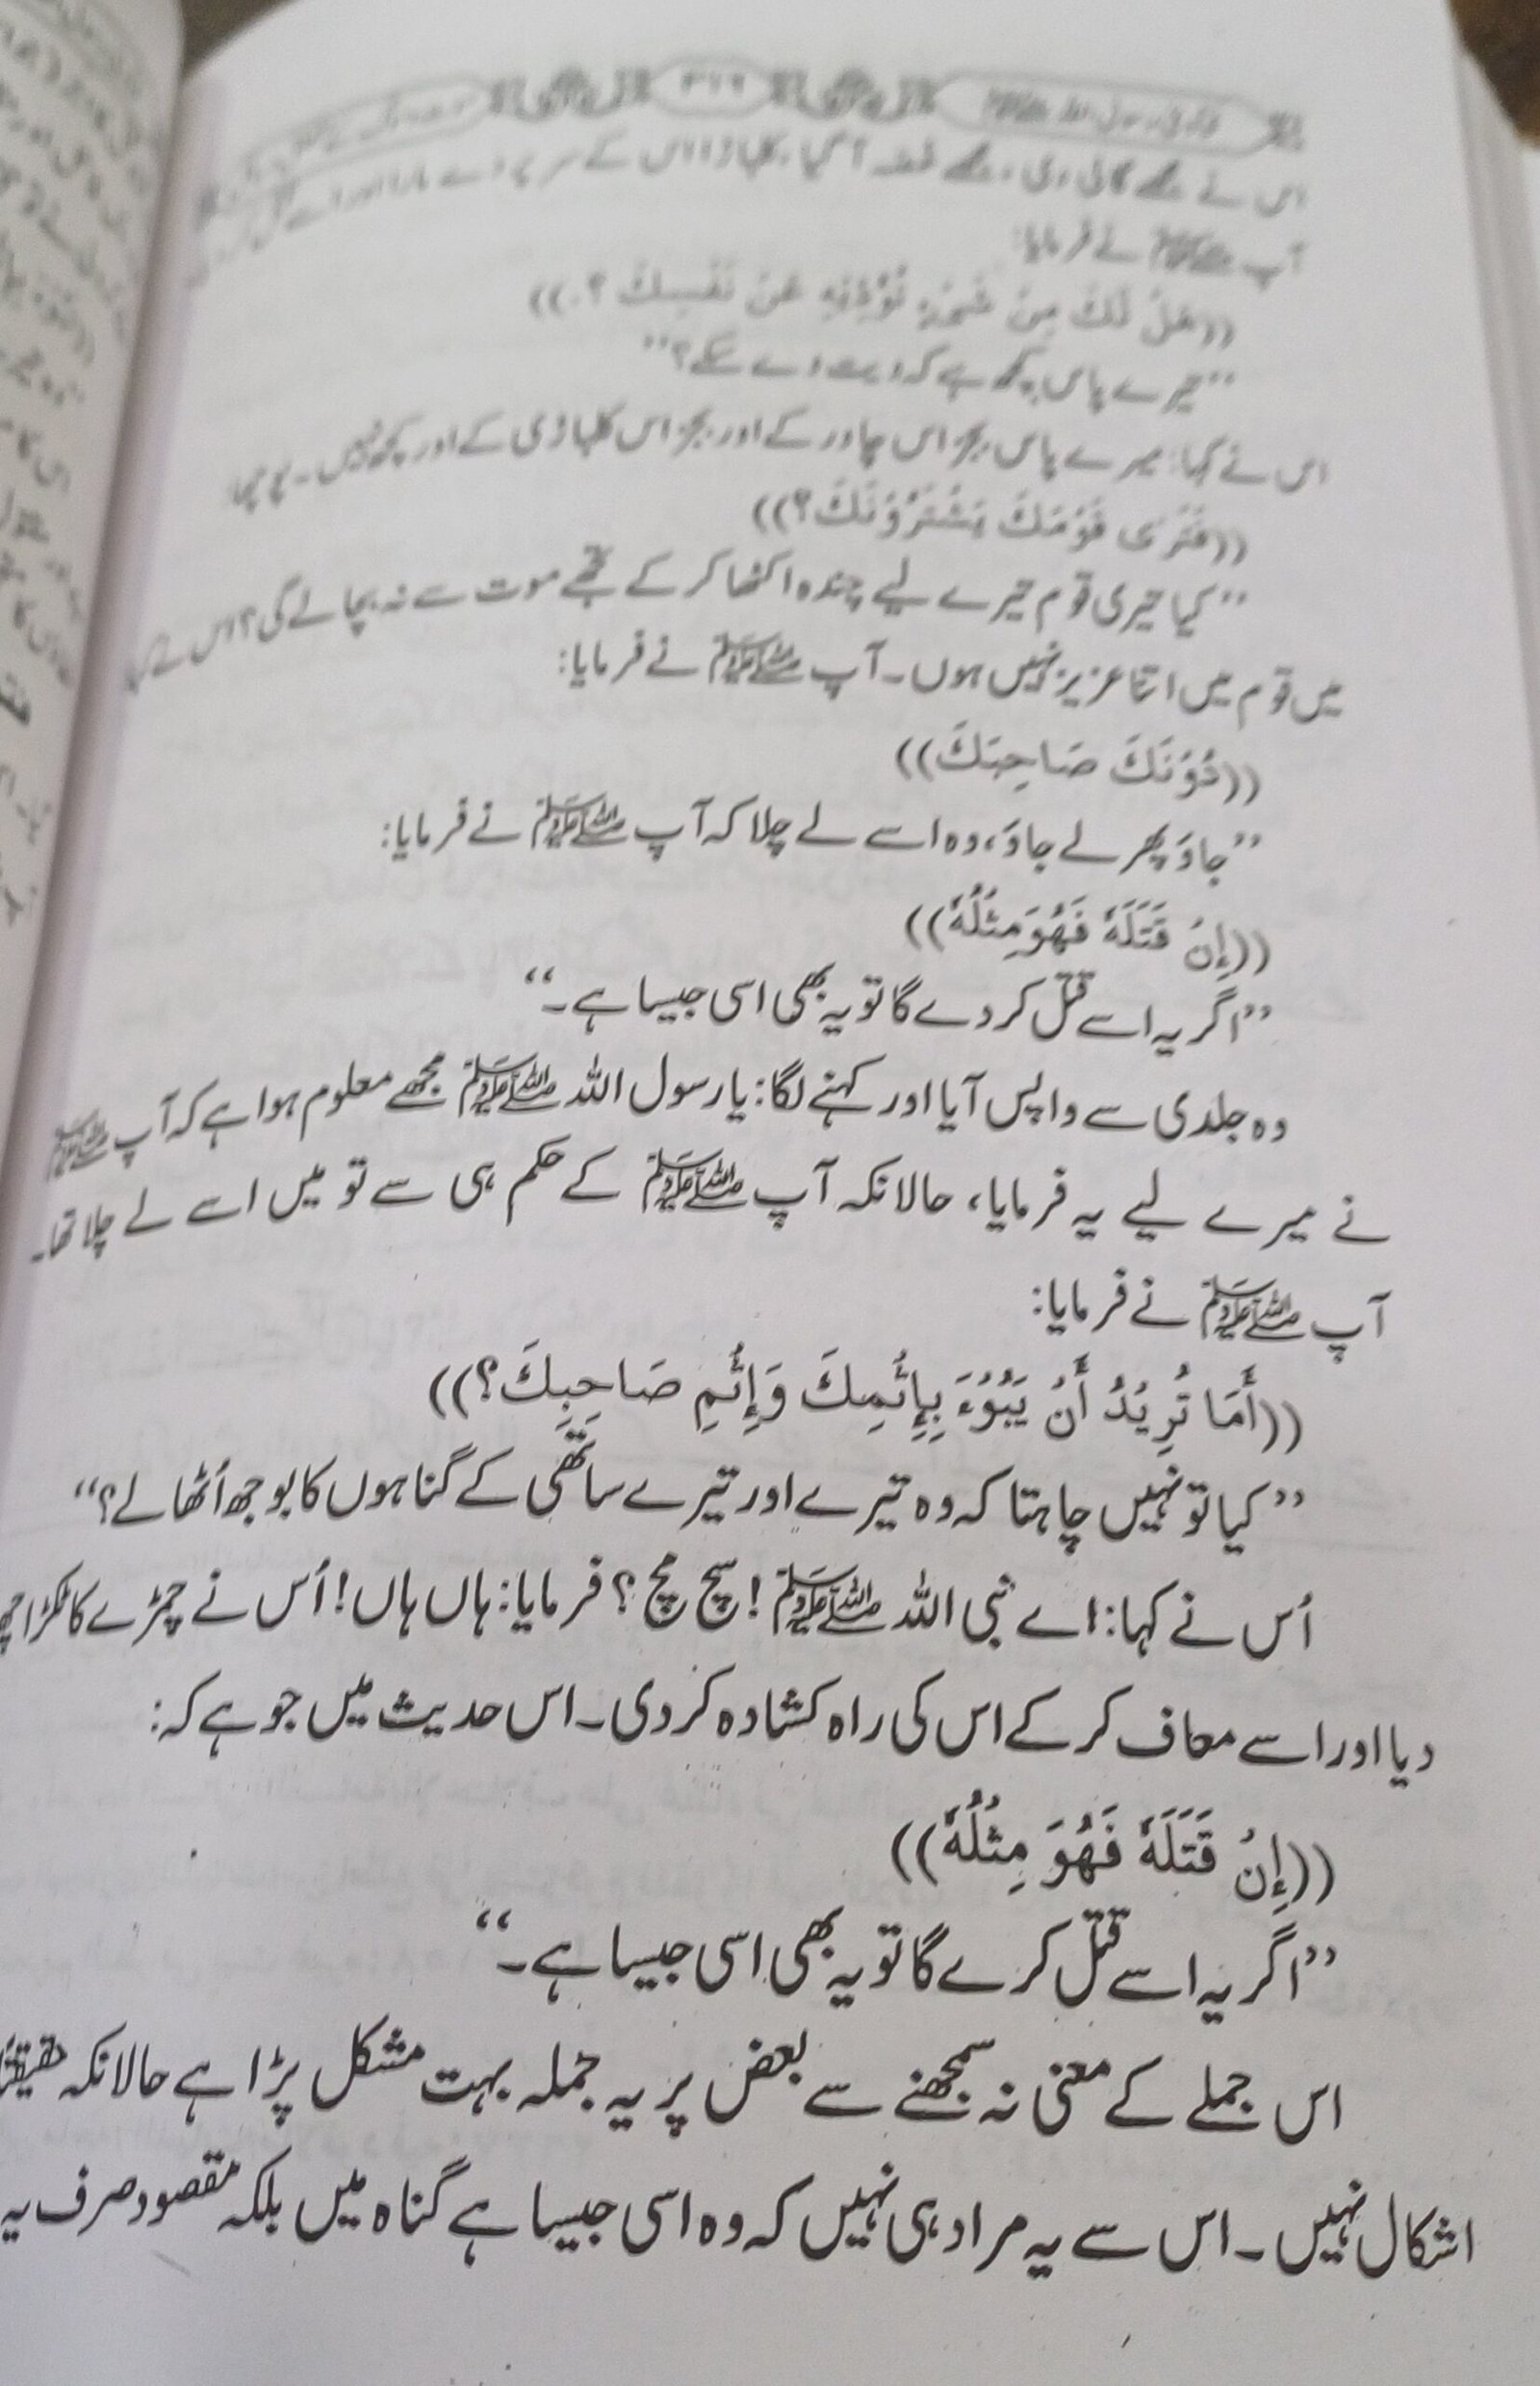 ۳۱۶
اس نے مجھے گالی دی، مجھے غصہ آ گیا، کلہاڑا اس کے سر پر دے مارا اور اسے
آپ ﷺ نے فرمایا:
((هَلْ لَكَ مِنْ شَيْءٍ تُؤَدِّيْهِ عَنْ نَفْسِكَ؟))
’’تیرے پاس کچھ ہے کہ دیت دے سکے؟‘‘
اس نے کہا: میرے پاس بجز اس چادر کے اور بجز اس کلہاڑی کے اور کچھ نہیں۔ پوچھا:
((فَتَرٰى قَوْمَكَ يَشْتَرُوْنَكَ؟))
’’کیا تیری قوم تیرے لیے چندہ اکٹھا کر کے تجھے موت سے نہ بچا لے گی؟ اس نے کہا
میں قوم میں اتنا عزیز نہیں ہوں۔ آپ ﷺ نے فرمایا:
((دُوْنَكَ صَاحِبَكَ))
’’جاؤ پھر لے جاؤ، وہ اسے لے چلا کہ آپ ﷺ نے فرمایا:
((إِنْ قَتَلَهٗ فَهُوَ مِثْلُهٗ))
’’اگر یہ اسے قتل کر دے گا تو یہ بھی اسی جیسا ہے۔‘‘
وہ جلدی سے واپس آیا اور کہنے لگا: یا رسول اللہ ﷺ مجھے معلوم ہوا ہے کہ آپ ﷺ
نے میرے لیے یہ فرمایا، حالانکہ آپ ﷺ کے حکم ہی سے تو میں اسے لے چلا تھا۔
آپ ﷺ نے فرمایا:
((أَمَا تُرِيْدُ أَنْ يَبُوْءَ بِإِثْمِكَ وَإِثْمِ صَاحِبِكَ؟))
’’کیا تو نہیں چاہتا کہ وہ تیرے اور تیرے ساتھی کے گناہوں کا بوجھ اُٹھا لے؟‘‘
اُس نے کہا: اے نبی اللہ ﷺ! سچ مچ؟ فرمایا: ہاں ہاں! اُس نے چمڑے کا ٹکڑا
دیا اور اسے معاف کر کے اس کی راہ کشادہ کر دی۔ اس حدیث میں جو ہے کہ:
((إِنْ قَتَلَهٗ فَهُوَ مِثْلُهٗ))
’’اگر یہ اسے قتل کرے گا تو یہ بھی اسی جیسا ہے۔‘‘
اس جملے کے معنی نہ سمجھنے سے بعض پر یہ جملہ بہت مشکل پڑا ہے حالانکہ حقیقتاً
اشکال نہیں۔ اس سے یہ مراد ہی نہیں کہ وہ اسی جیسا ہے گناہ میں بلکہ مقصود صرف یہ